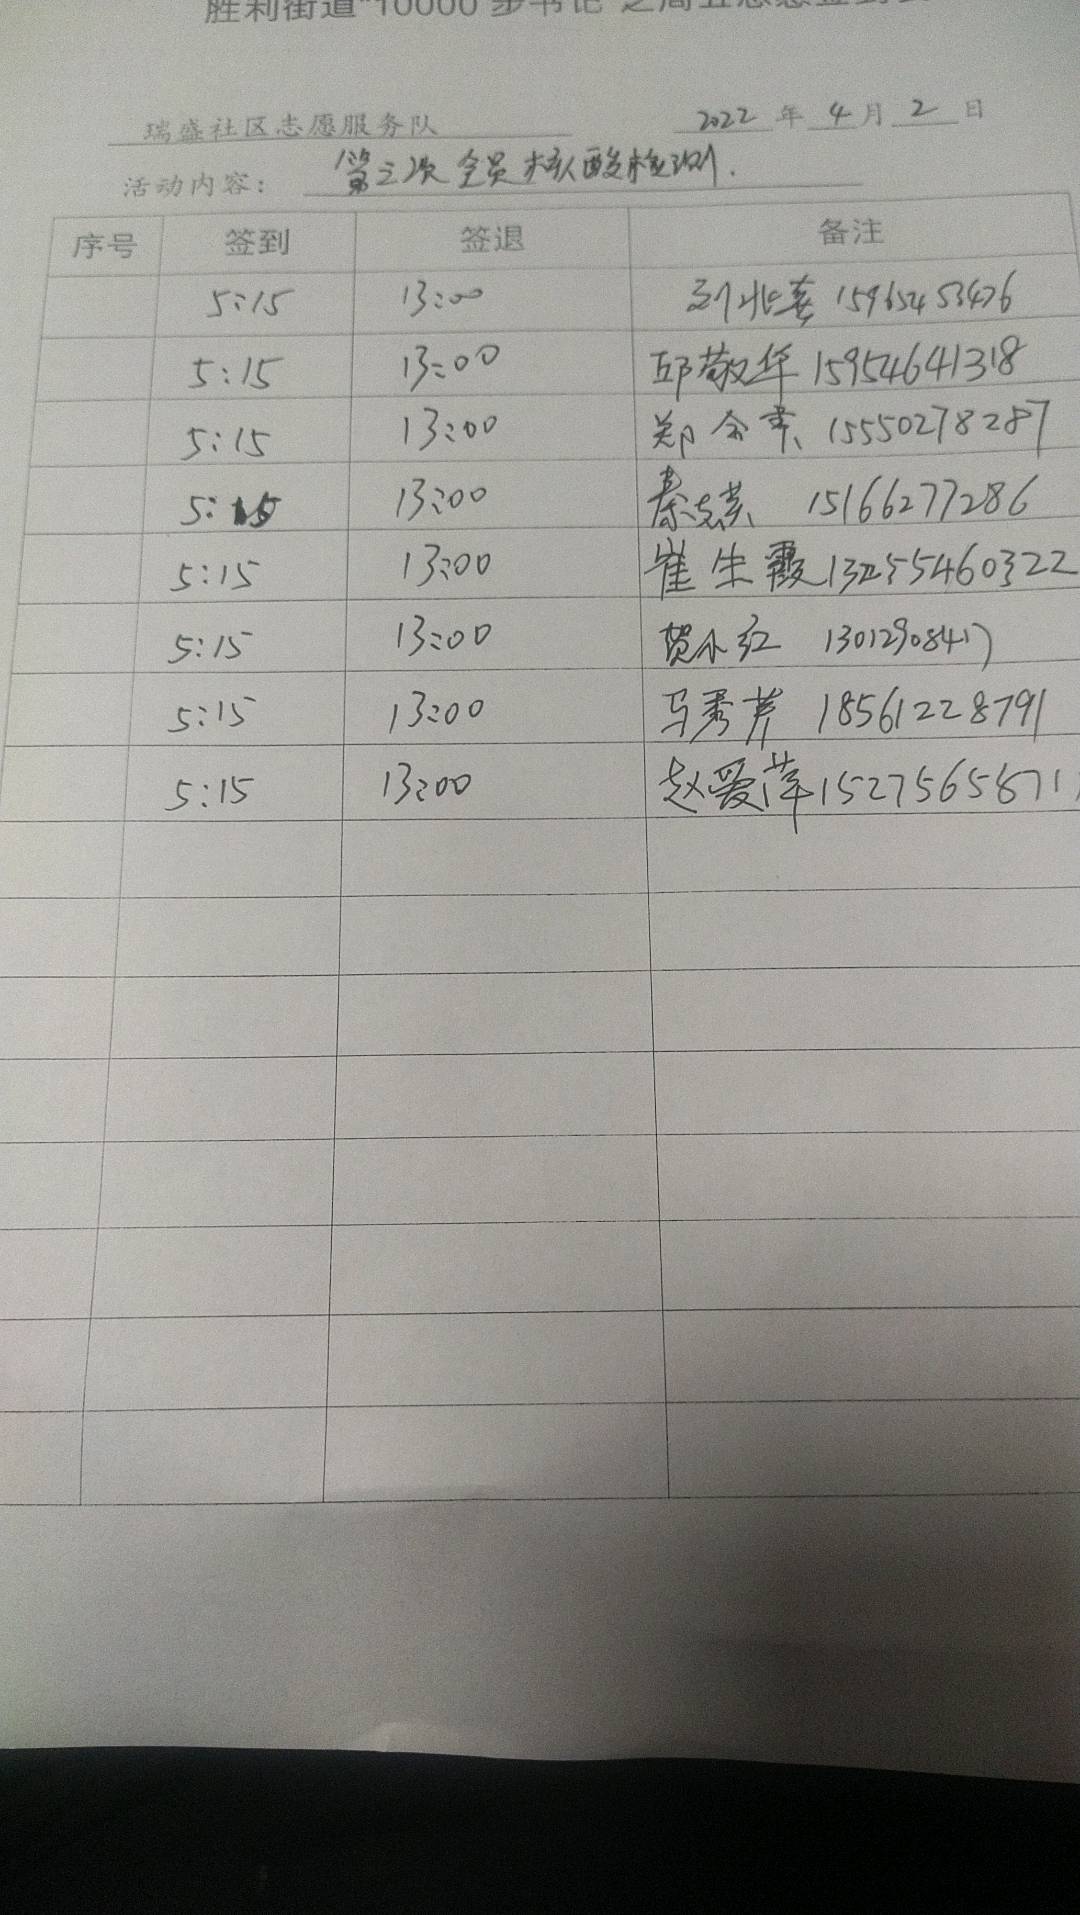 胜利街道"10000步书记"之周五志愿签到表
瑞盛社区志愿服务队 2022年4月2日
活动内容: 第三次全员核酸检测.
序号 签到 签退 备注
5:15 13:00 15965453476
5:15 13:00 邱敬华 15954641318
5:15 13:00 郑 15550278287
5:15 13:00 秦 15166277286
5:15 13:00 崔生霞
5:15 13:00 贺小红 13012908417
5:15 13:00 马秀芹 18561228791
5:15 13:00 赵爱萍